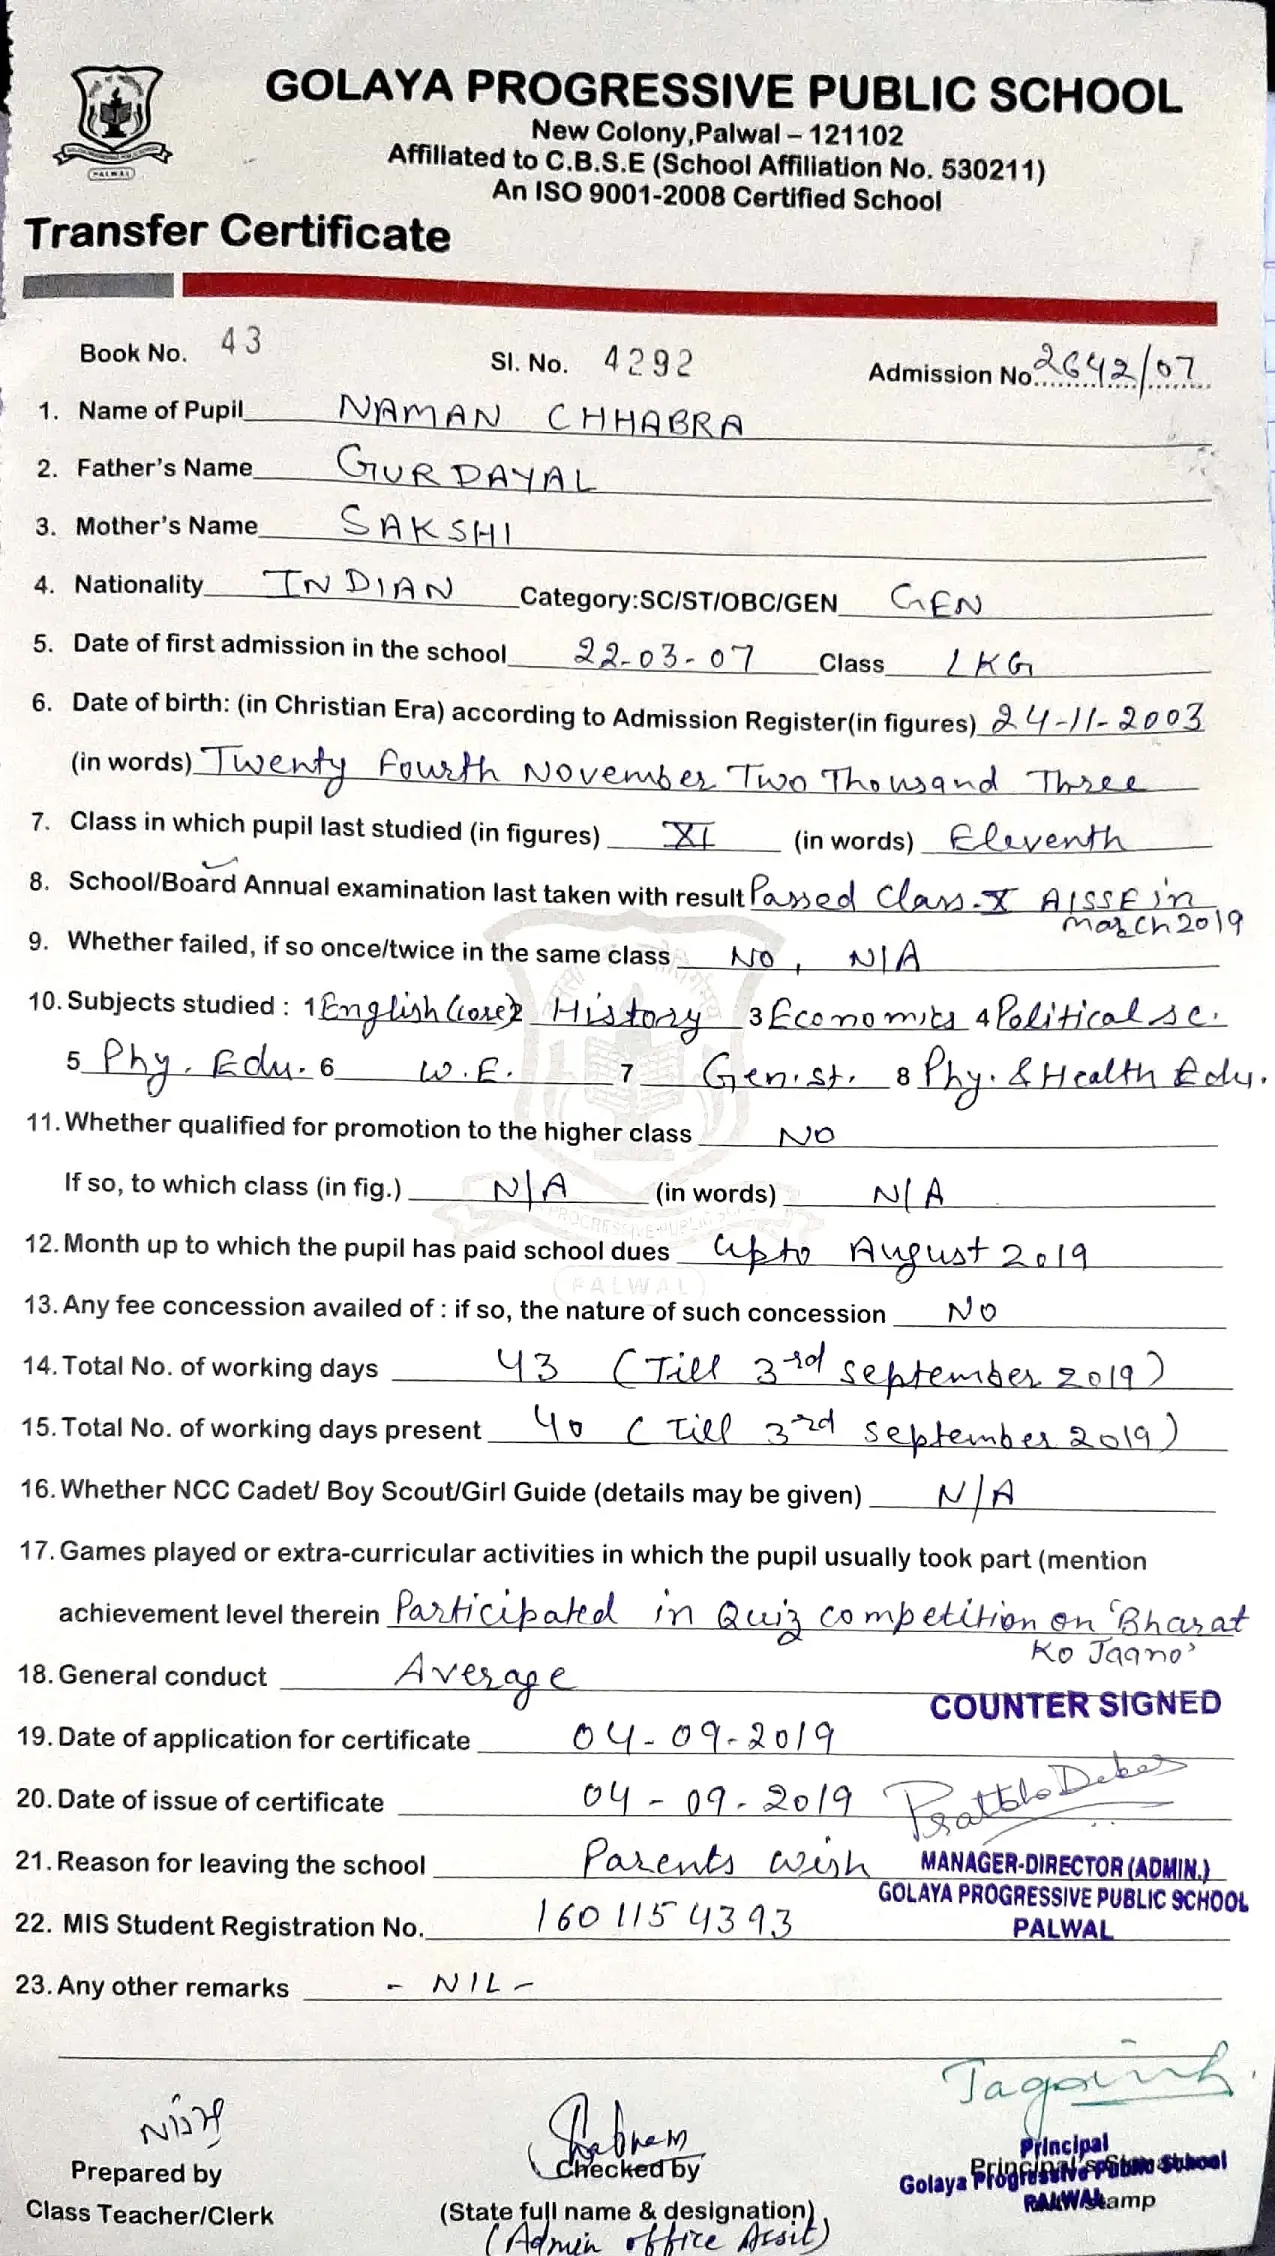 GOLAYA PROGRESSIVE PUBLIC SCHOOL
New Colony,Palwal – 121102
Affiliated to C.B.S.E (School Affiliation No. 530211)
An ISO 9001-2008 Certified School
PALWAL
Transfer Certificate
Book No. 43 SI. No. 4292 Admission No. 2642/07
1. Name of Pupil NAMAN CHHABRA
2. Father's Name GURDAYAL
3. Mother's Name SAKSHI
4. Nationality INDIAN Category:SC/ST/OBC/GEN GEN
5. Date of first admission in the school 22-03-07 Class LKG
6. Date of birth: (in Christian Era) according to Admission Register(in figures) 24-11-2003
(in words) Twenty Fourth November Two Thousand Three
7. Class in which pupil last studied (in figures) XI (in words) Eleventh
8. School/Board Annual examination last taken with result Passed Class-X AISSE in
March 2019
9. Whether failed, if so once/twice in the same class No, N/A
10. Subjects studied : 1 English (core) 2 History 3 Economics 4 Political sc.
5 Phy. Edu. 6 W.E. 7 Gen. st. 8 Phy. & Health Edu.
11. Whether qualified for promotion to the higher class NO
If so, to which class (in fig.) N/A (in words) N/A
12. Month up to which the pupil has paid school dues upto August 2019
PALWAL
13. Any fee concession availed of : if so, the nature of such concession NO
14. Total No. of working days 43 (Till 3rd September 2019)
15. Total No. of working days present 40 (Till 3rd September 2019)
16. Whether NCC Cadet/ Boy Scout/Girl Guide (details may be given) N/A
17. Games played or extra-curricular activities in which the pupil usually took part (mention
achievement level therein Participated in Quiz competition on 'Bharat
Ko Jaano'
18. General conduct Average
COUNTER SIGNED
19. Date of application for certificate 04-09-2019
20. Date of issue of certificate 04-09-2019
21. Reason for leaving the school Parents wish
MANAGER-DIRECTOR (ADMIN.)
GOLAYA PROGRESSIVE PUBLIC SCHOOL
PALWAL
22. MIS Student Registration No. 160 115 4393
23. Any other remarks - NIL -
Shabnam
Prepared by Checked by Principal's
Class Teacher/Clerk (State full name & designation)
(Admin office Assit)
Principal
Golaya Progressive Public School
PALWAL